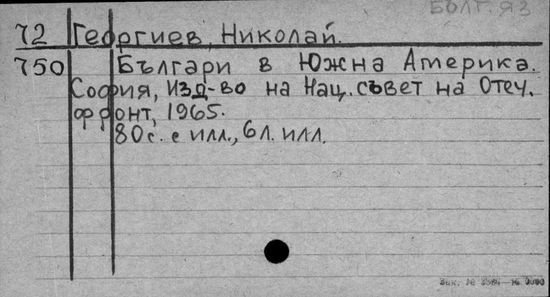 БОЛГ. ЯЗ
72 Георгиев, Николай.
750 Българи в Южна Америка.
София, Изд-во на Нац. съвет на Отеч.
фронт, 1965.
80 с. с илл., 6 л. илл.